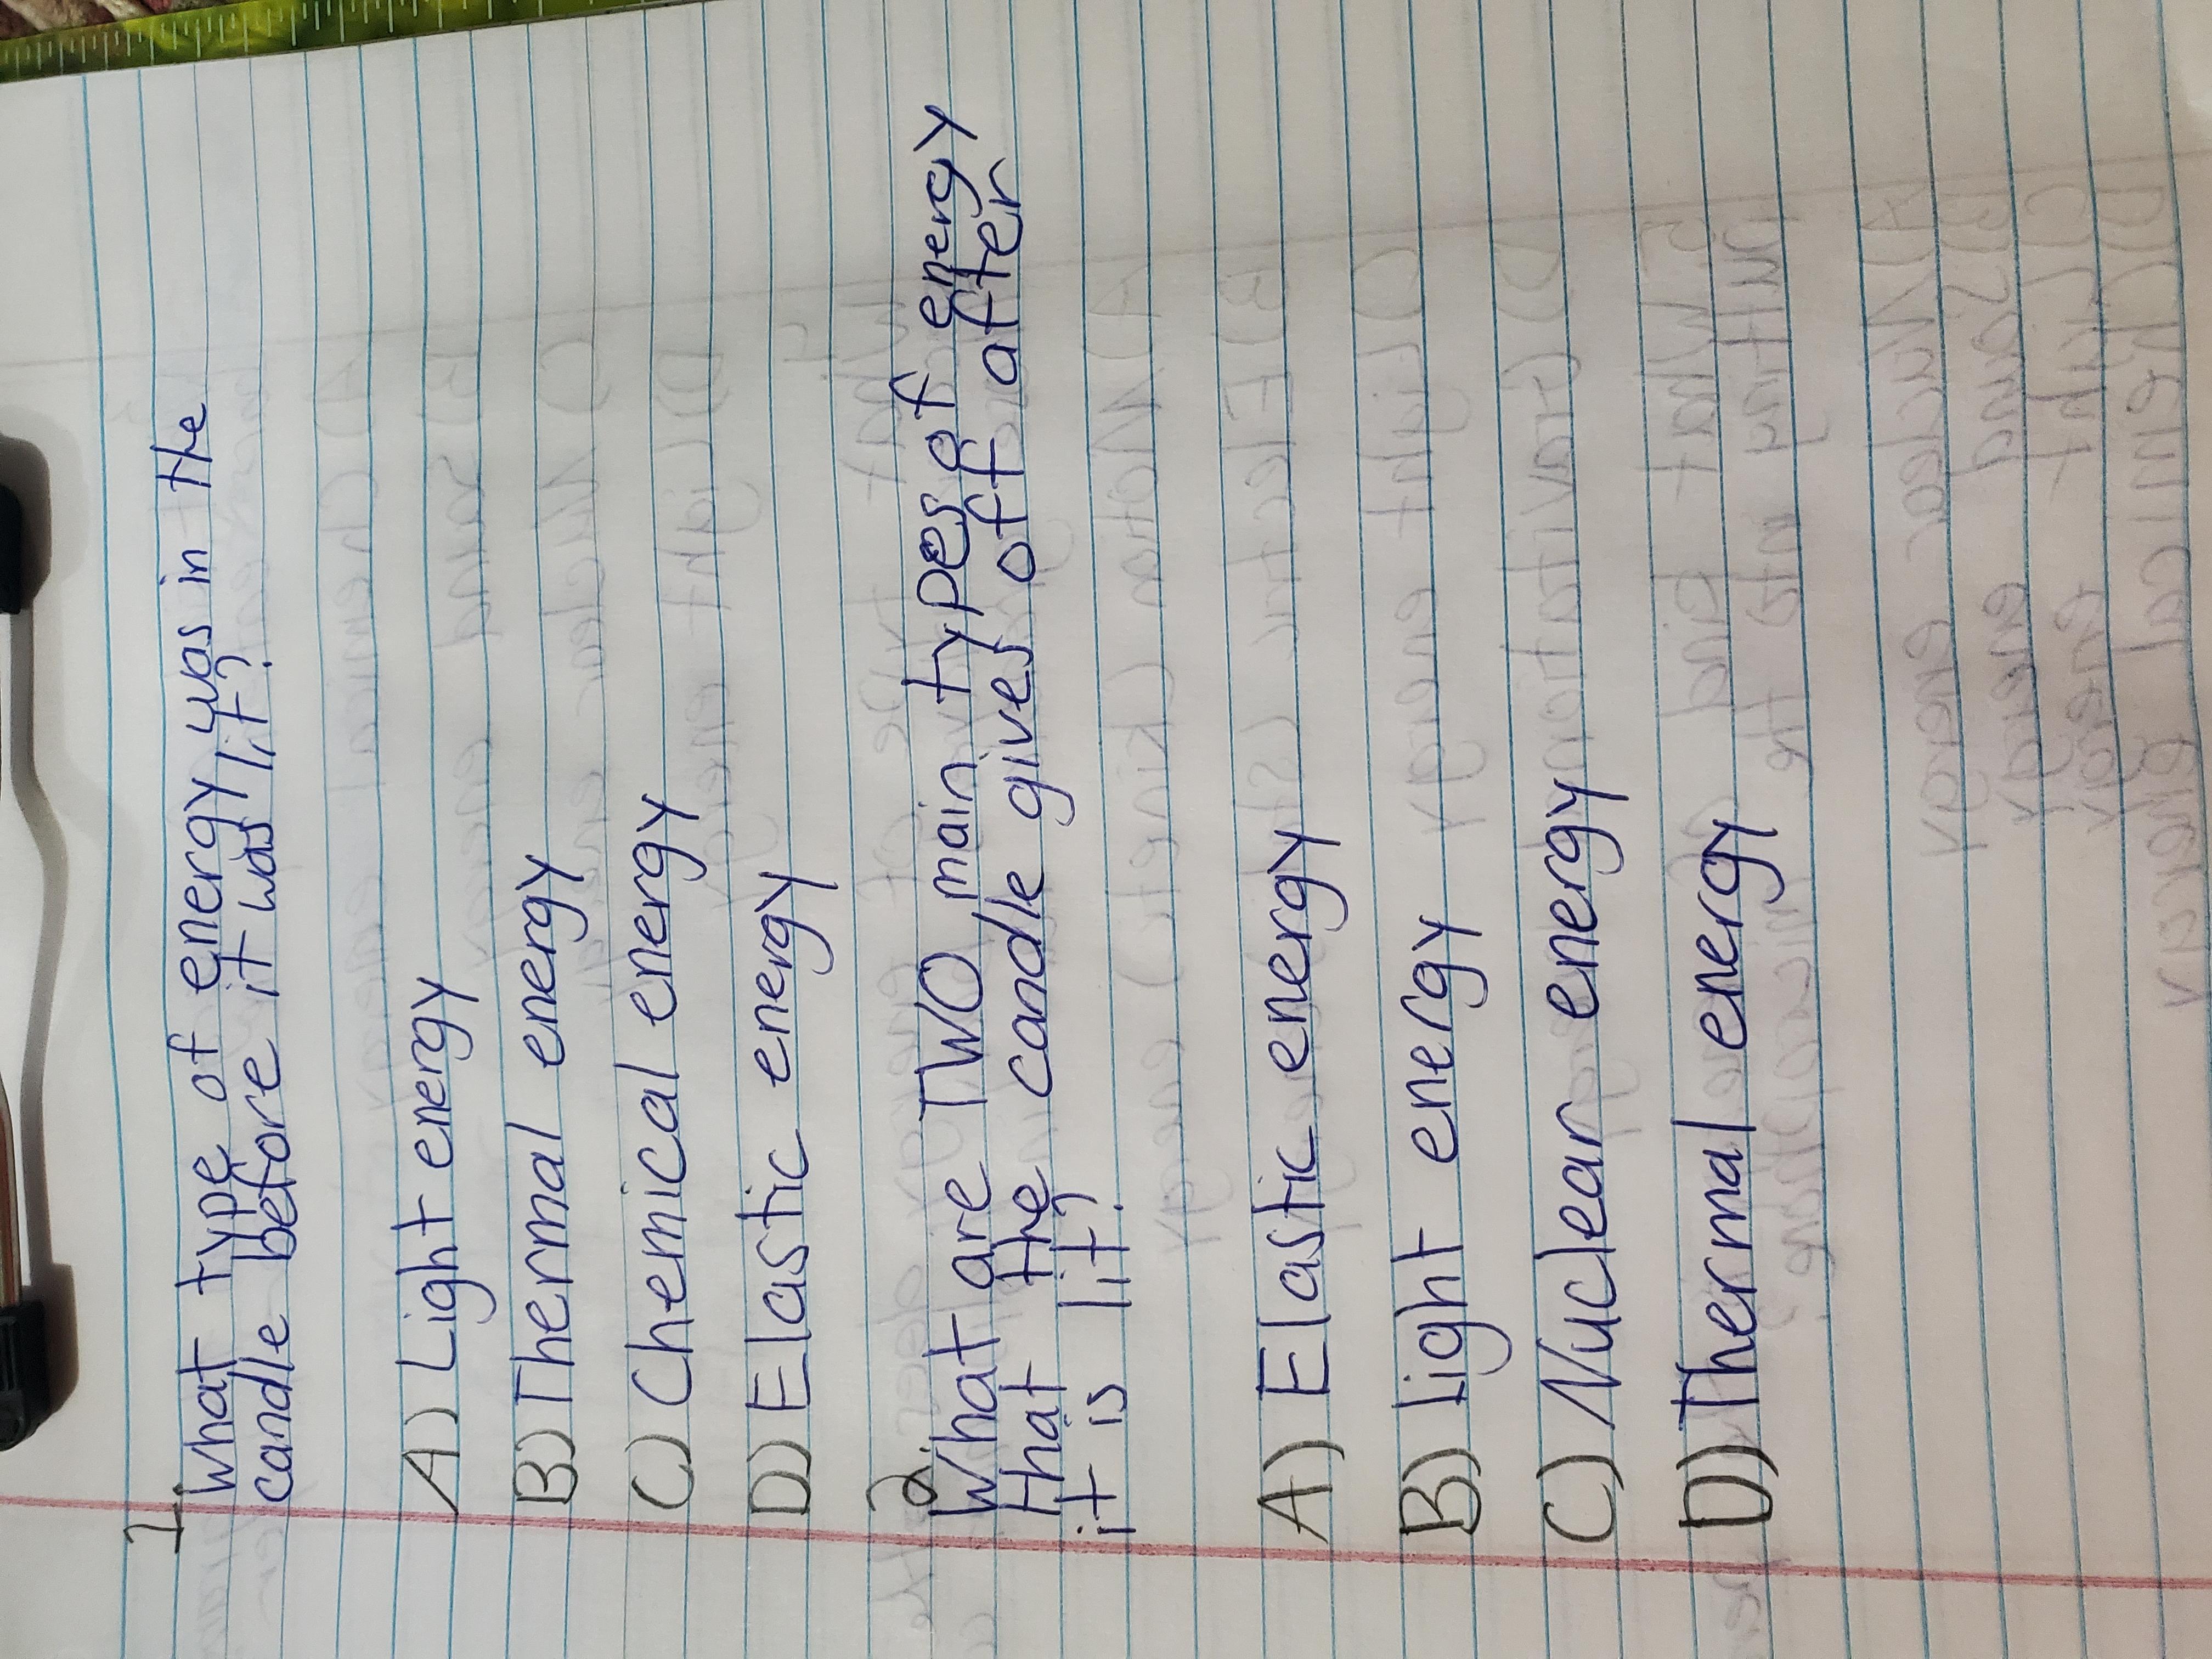 1
What type of energy was in the
candle before it was lit?
A) Light energy
B) Thermal energy
C) Chemical energy
D) Elastic energy
2.
What are TWO main types of energy
that the candle gives off after
it is lit?
A) Elastic energy
B) Light energy
C) Nuclear energy
D) Thermal energy